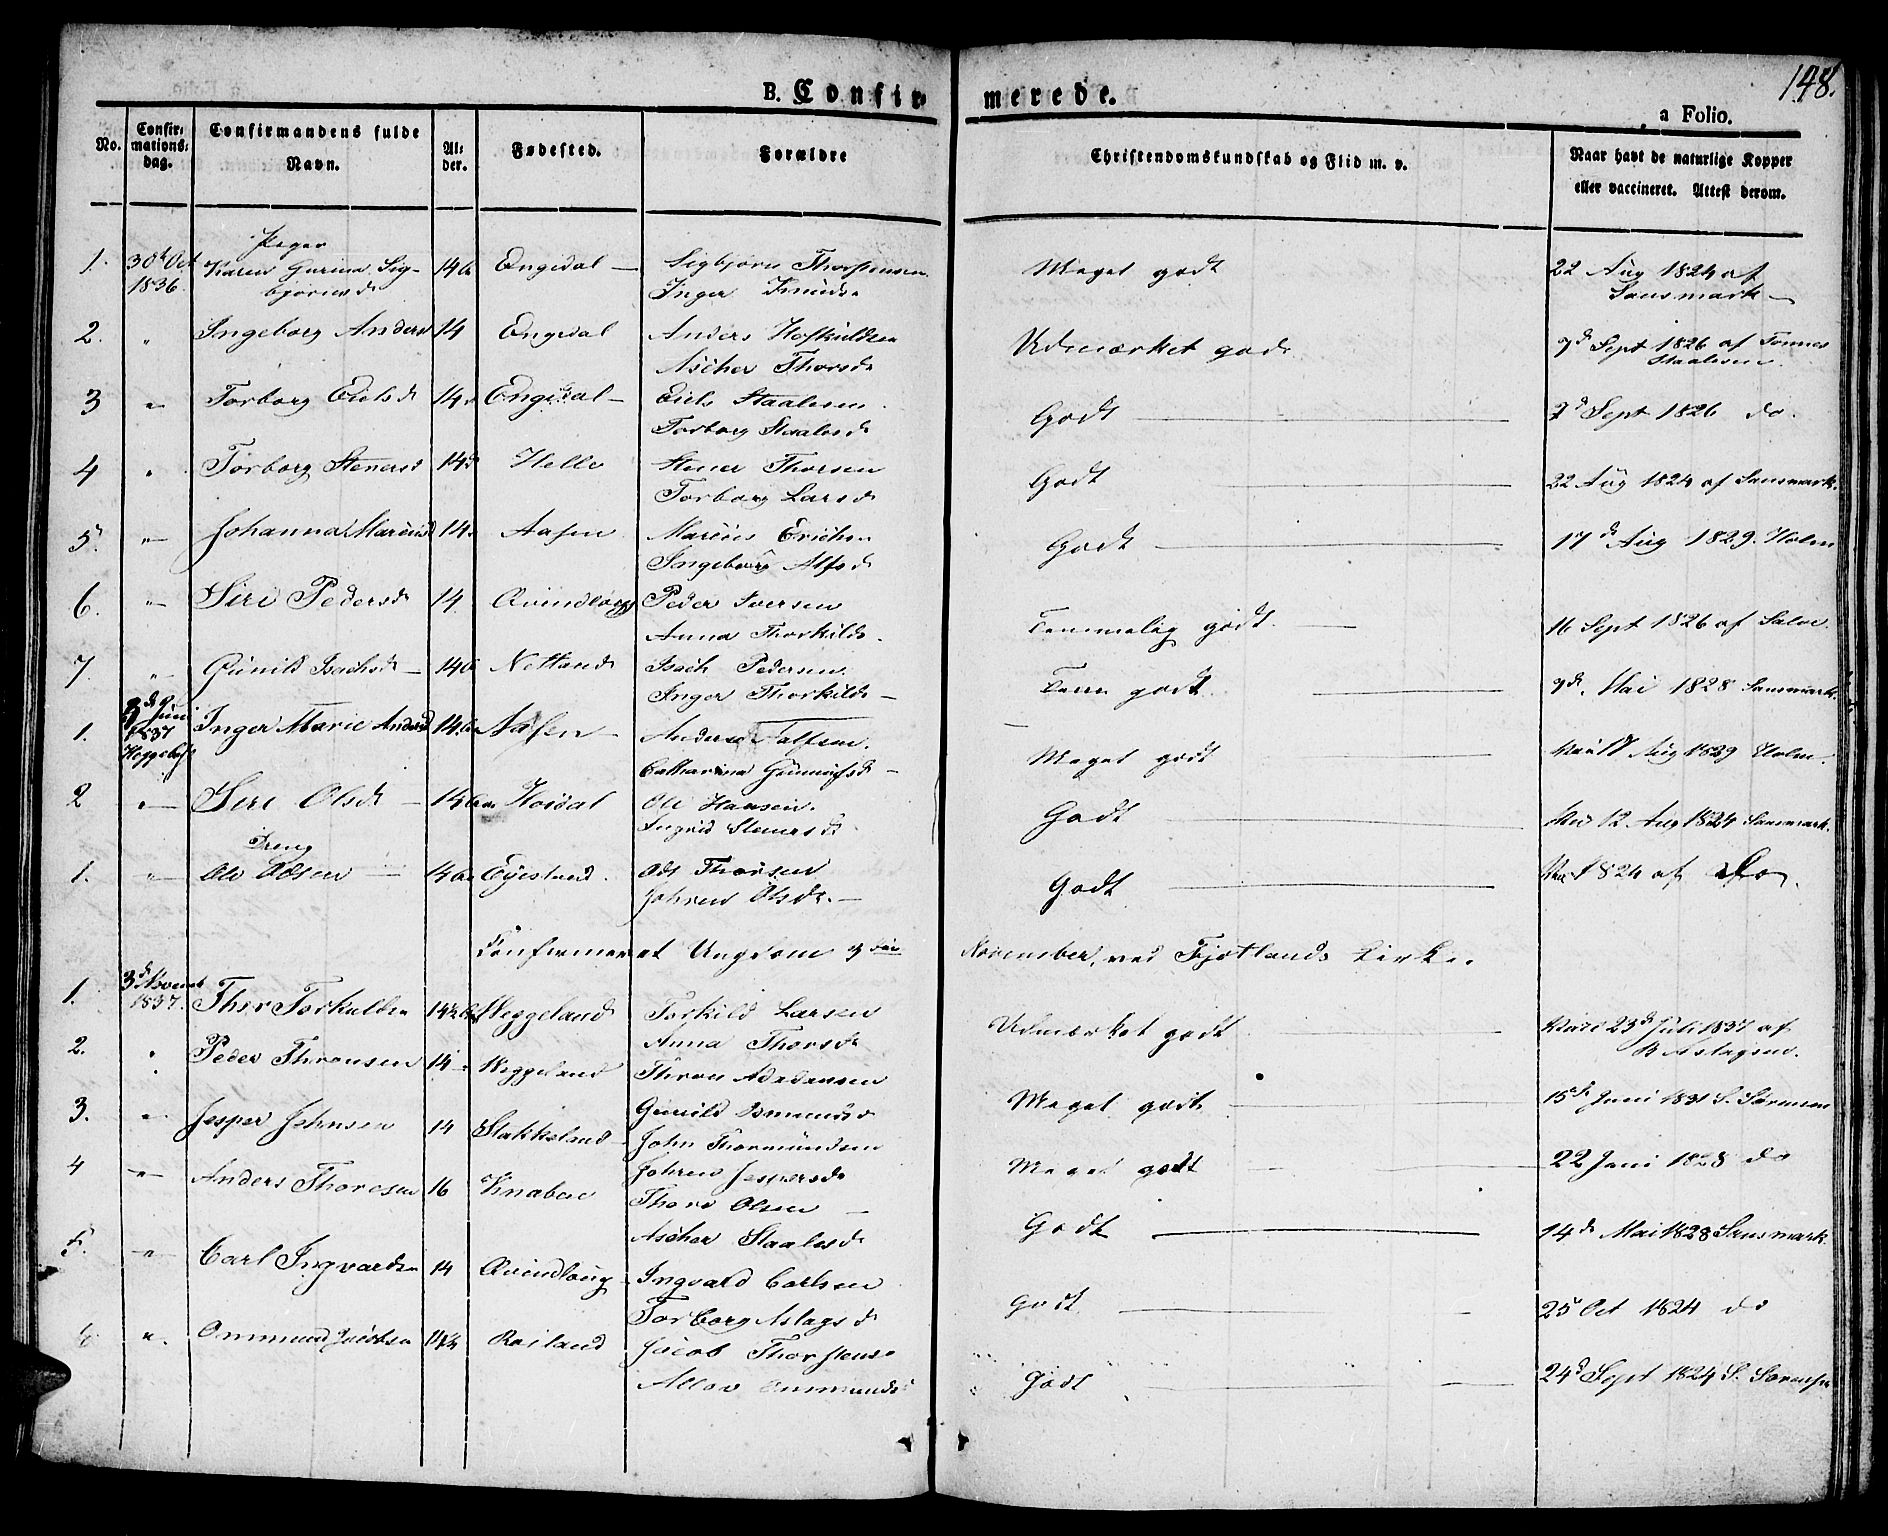 148.
B. Confirmerede.
a Folio.
No.
Confirmationsdag.
Confirmandens fulde Navn.
Alder.
Fødested.
Forældre
Christendomskundskab og Flid m. v.
Naar havt de naturlige Kopper eller vaccineret. Attest derom.
Piger
1. 30t Oct 1836. Karen Gurina Sigbjørnsd 14 Engedal — Sigbjørn Thorstensen Inger Knudsd Meget godt 22 Aug 1824 af Sansmark —
2. " Ingeborg Andersd 14 Engedal Anders Hoskuldsen Ascher Thorsd Udmærket godt 7d Sept 1826 af Tønnes Staalesen.
3 " Torborg Eielsd 14 Engedal — Eiels Staalesen Torborg Staalesd Godt — 7d Sept 1826 do.
4 " Torborg Stenersd 14 Helle Stener Thorsen Torborg Larsd Godt — 22 Aug 1824 af Sansmark.
5. " Johanna Mariusd 14 Aasen Marius Erichsen Ingeborg Alfsd Godt — 17d Aug 1829. Holm
6. " Siri Pedersd 14 Qvindlaug Peder Iversen Anna Thorkilds. Temmelig godt. — 16 Sept 1826 af Salve.
7. " Gunild Isachsd — 14 Netland Isach Pedersen. Inger Thorkildsd — Tem godt. — 9d. Mai 1828 Sansmark
1. Juni 1837 Heggebost Inger Marie Andersd 14 Aasen — Anders Catharina — Meget godt Aug 1829 Holm.
2 " — Siri Olsd — 14 Hoisdal Ole Hansen. Ingrid Stenersd Godt — 12. Aug 1824 Sansmark.
Dreng
1. " Ole Odsen — 14 Eyesland. Ods Thorsen Johren Olsd. — Godt — 1824 af Do.
Confirmeret Ungdom 3die November, ved Fjotlands Kirke.
1. 3d Novemb 1837. Thor Torkildsen 14½ Heggeland Torkild Larsen Anna Thorsd Udmærket godt — 23d Juli 1837 af B Aslagsen.
2. " Peder Thronsen 14 Heggeland Thron Adadansen Gunild Omundsd Meget godt — 15d Juni 1831 S. Sørensen
3. " Jesper Johnsen 14 Stakkeland — John Thormundsen Johren Jespersd Meget godt — 22 Juni 1828 do
4 " Anders Thoresen 16 Knaben Thore Olsen — Ascher Staalesd Godt — 14d Mai 1828 Sansmark.
5. " Carl Ingvardsen 14 Qvindlaug Ingvard Carlsen Torborg Aslagsd Godt — 25 Oct 1824 do
6 ". Ommund Jacobsen 14½ Roiland Jacob Thorstens Ommunds Godt — 24d Sept 1824 S. Sørensen